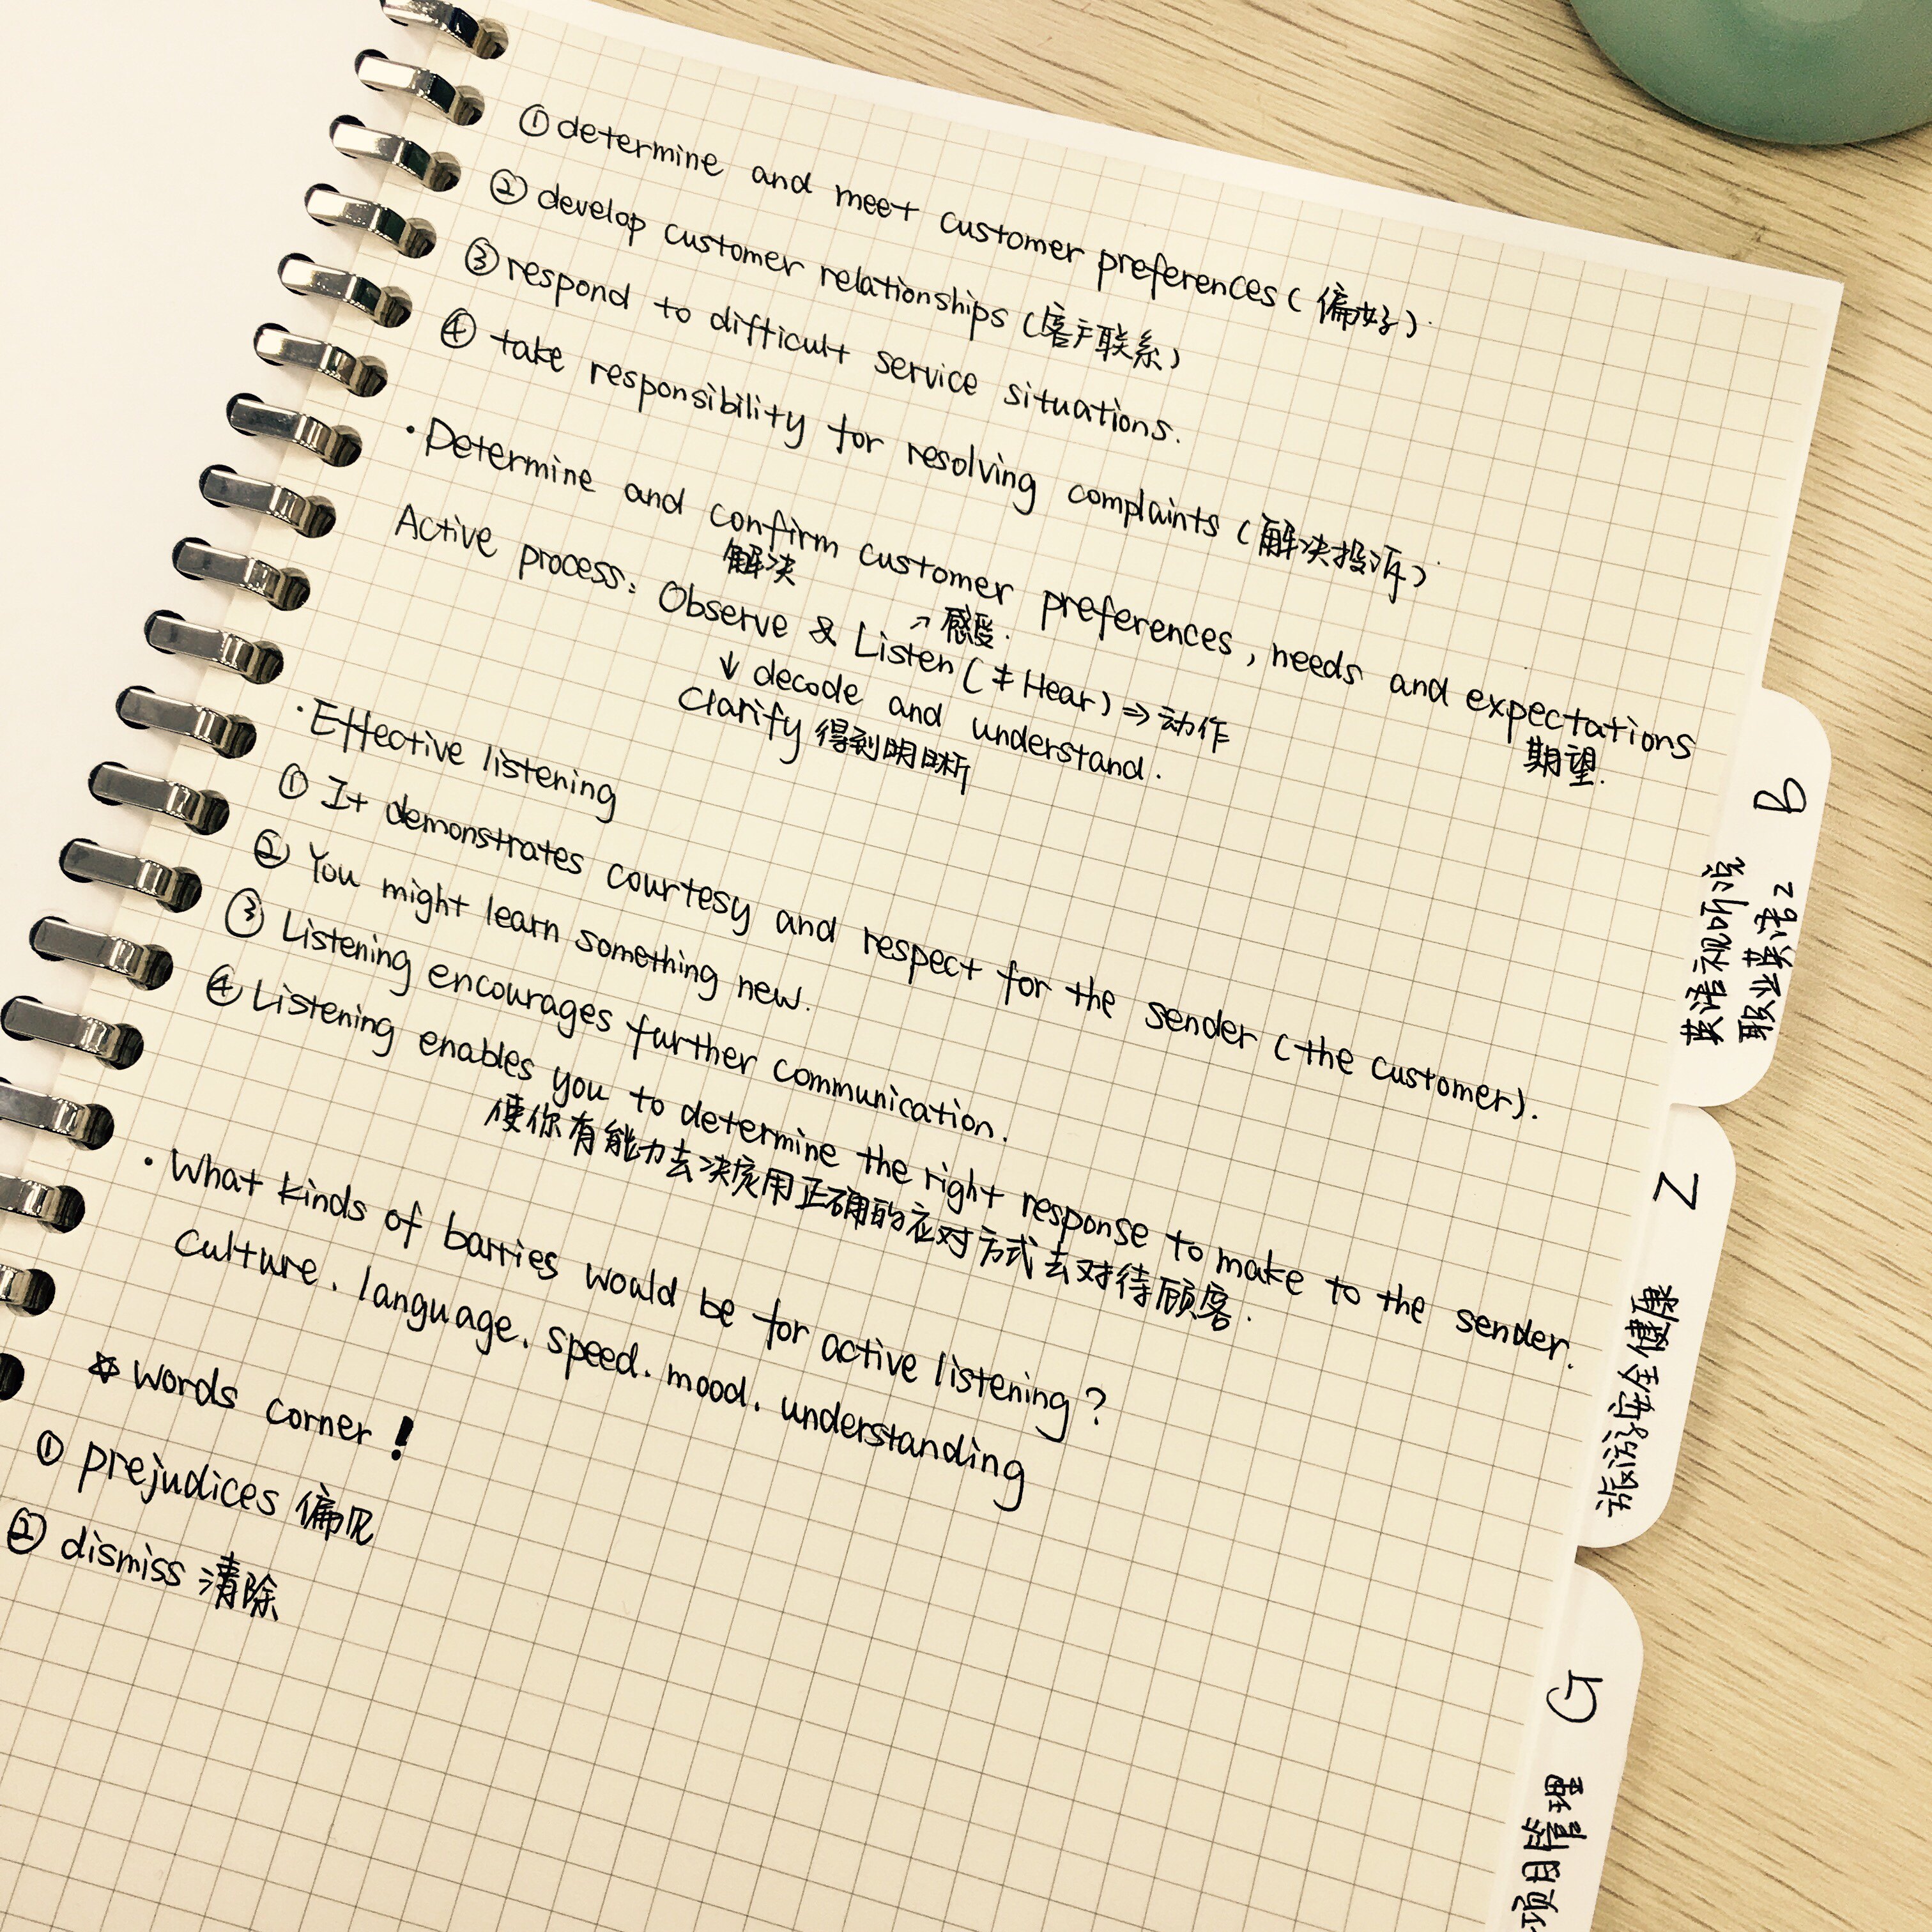 ① determine and meet customer preferences (偏好).
② develop customer relationships (客户联系)
③ respond to difficult service situations.
④ take responsibility for resolving complaints (解决投诉)
· Determine and confirm customer preferences, needs and expectations
解决
期望.
↗ 感受.
Active process: Observe & Listen (≠ Hear) ⇒ 动作
↓ decode and understand.
Clarify 得到明晰
· Effective listening
① It demonstrates courtesy and respect for the sender (the customer).
② You might learn something new.
③ Listening encourages further communication.
④ Listening enables you to determine the right response to make to the sender.
使你有能力去决定用正确的应对方式去对待顾客.
· What kinds of barries would be for active listening?
culture. language. speed. mood. understanding
☆ Words corner!
① prejudices 偏见
② dismiss 清除
B
英语视听说
职业英语2
Z
旅游安全健康
G
项目管理